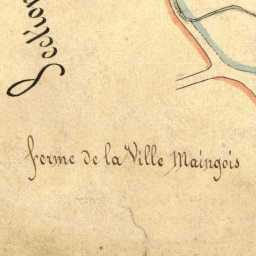 Section
ferme de la Ville Maingois